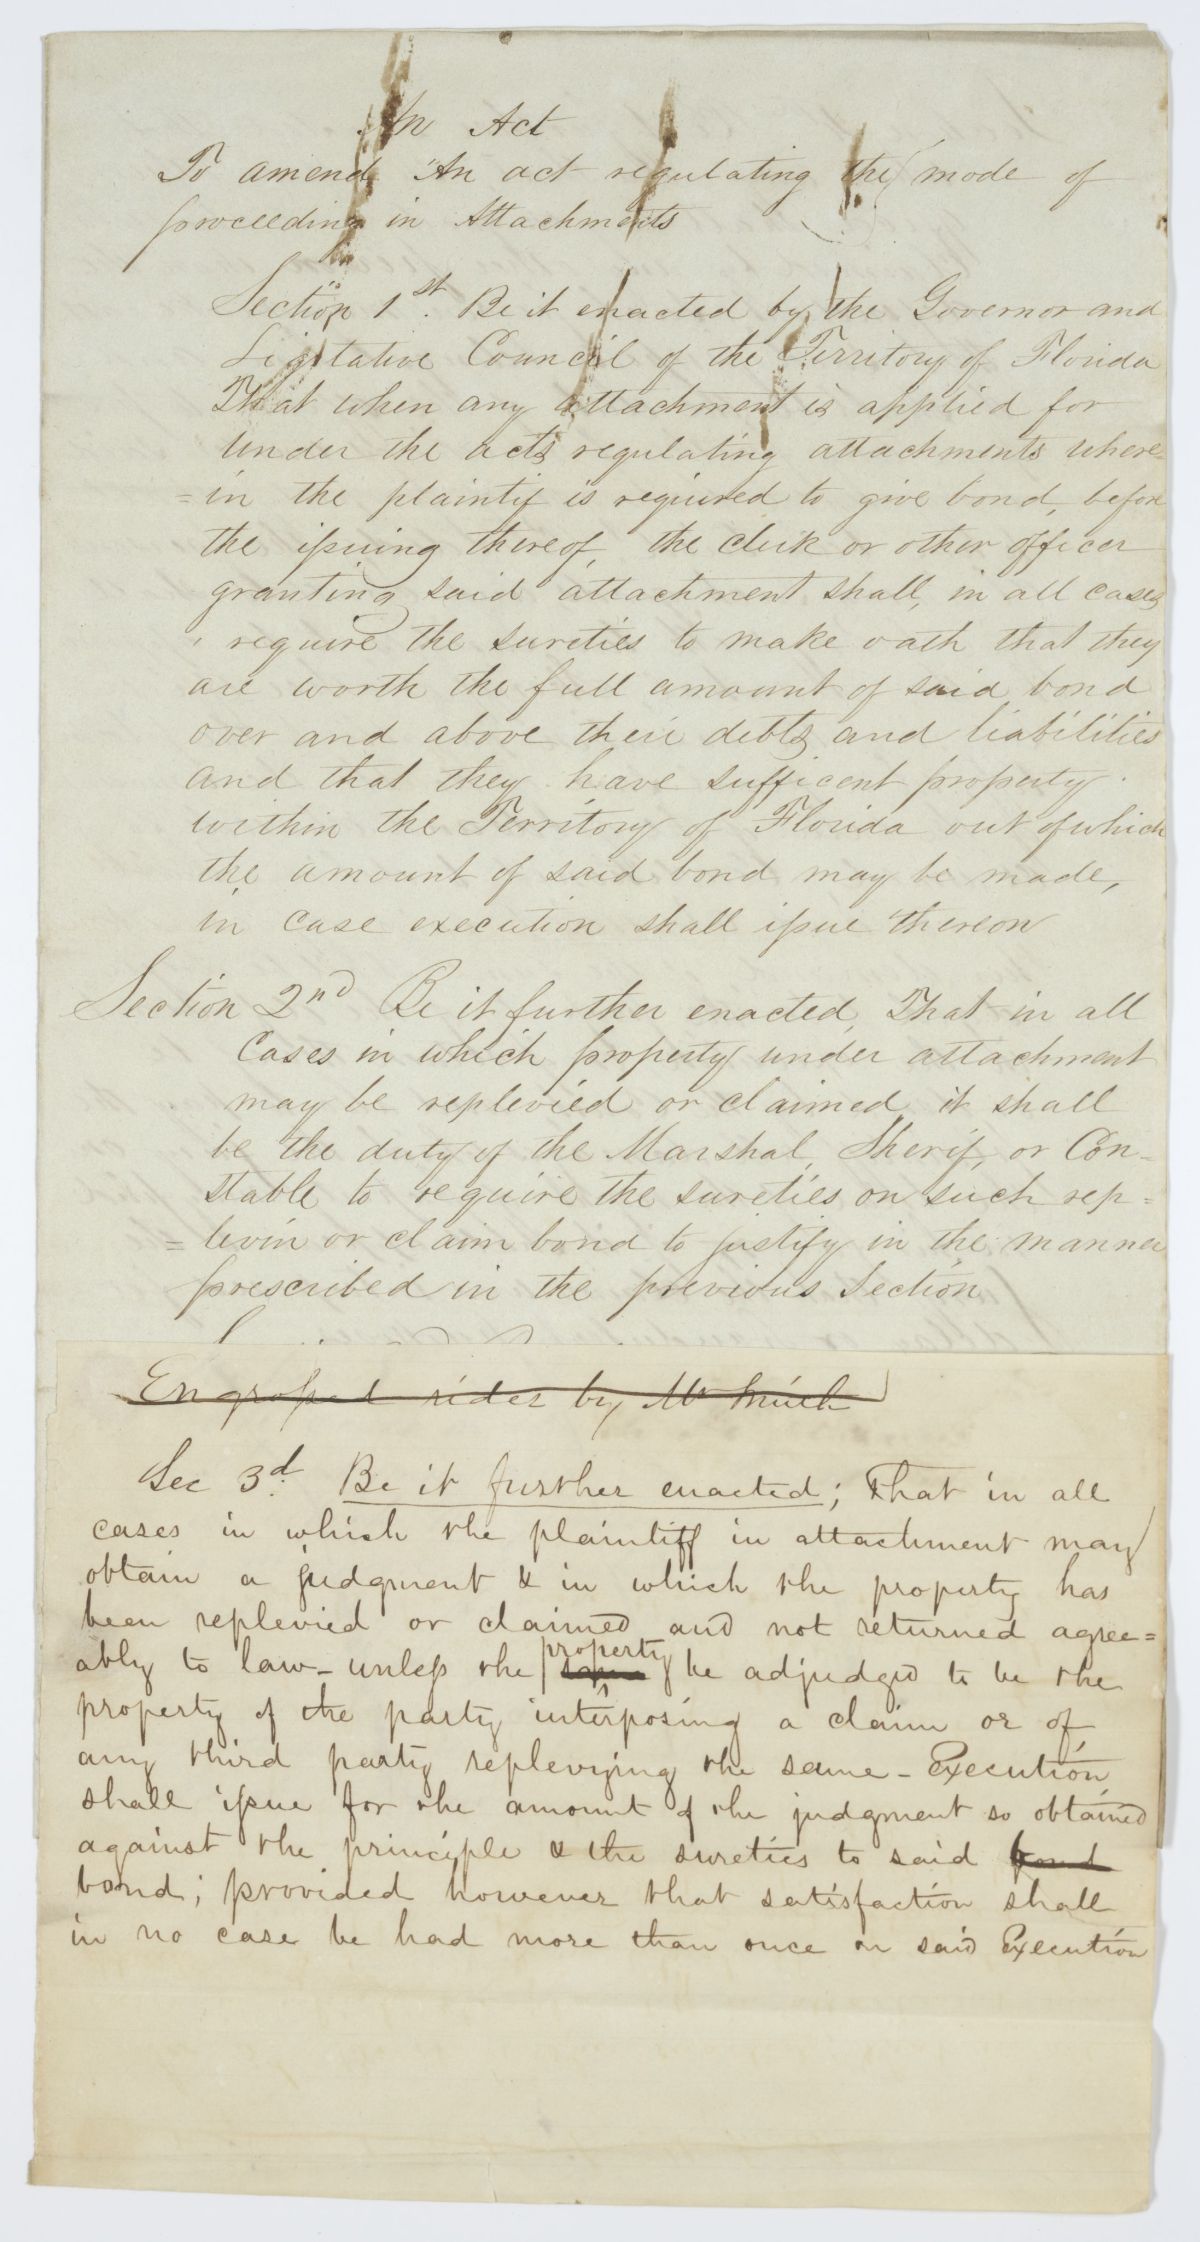 An Act
To amend An act regulating the mode of
proceeding in Attachments
Section 1st. Be it enacted by the Governor and
Ligitative Council of the Territory of Florida
That when any attachment is applied for
under the acts regulating attachments where=
=in the plaintif is required to give bond, before
the issuing thereof, the clerk or other officer
granting said attachment shall, in all cases
require the sureties to make oath that they
are worth the full amount of said bond
over and above their debts and liabilities
and that they have sufficent property
within the Territory of Florida out of which
the amount of said bond may be made,
in case execution shall issue thereon
Section 2nd Be it further enacted, That in all
Cases in which property under attachment
may be replevied or claimed it shall
be the duty of the Marshal, Sherif, or Con-
stable to require the sureties on such rep=
=levin or claim bond to justify in the manner
prescribed in the previous Section
Engrossed rider by Mr
Sec 3d. Be it further enacted; That in all
cases in which the plaintiff in attachment may
obtain a judgment & in which the property has
been replevied or claimed and not returned agree=
ably to law - unless the property be adjudged to be the
property of the party interposing a claim or of
any third party replevying the same - Execution
shall issue for the amount of the judgment so obtained
against the principle & the sureties to said bond
bond; provided however that satisfaction shall
in no case be had more than once on said Execution